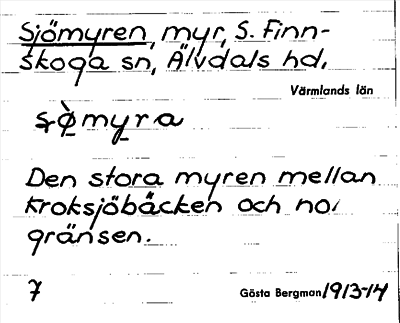 Sjömyren, myr, S. Finn-
skoga sn, Älvdals hd.
Värmlands län
Den stora myren mellan
Kroksjöbäcken och no
gränsen.
7
Gösta Bergman 1913-14